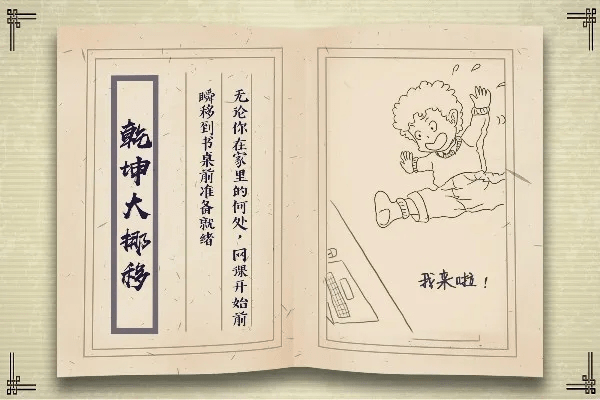 乾坤大挪移
无论你在家里的何处，网课开始前
瞬移到书桌前准备就绪
我来啦！